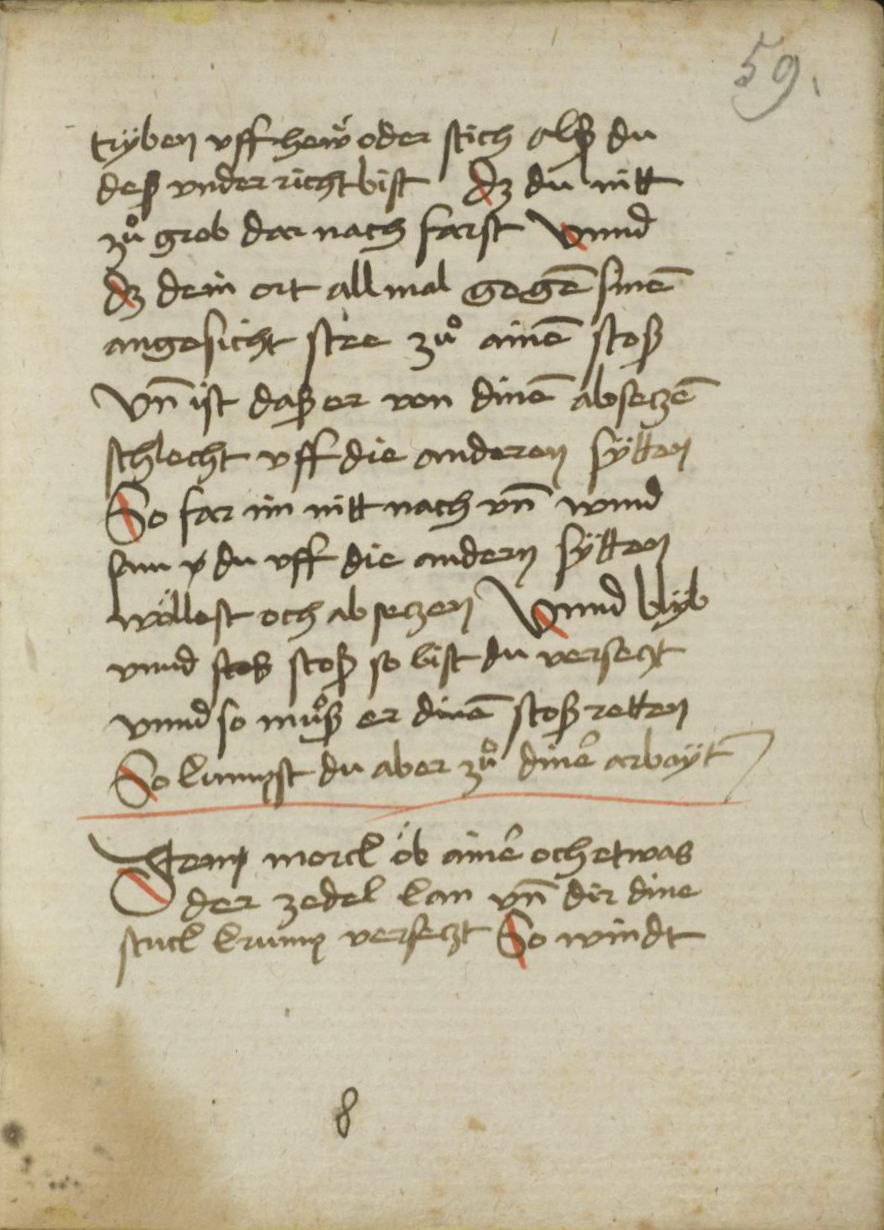 59.
tryben vff hew̎ oder stich alß du
deß vnderricht bist dz du nitt
zuͦ grob dar nach farst vnnd
dz dein ort all mal gegē sinē
angesicht ste zuͦ ainē stoß
Vn̄ ist daß er von dinē absetzē
schlecht vff die anderen sÿtten
So far im nitt nach vn̄ wind
sam du vff die andern sÿtten
wöllest och ab seczen Vnnd blÿb
vnnd stoß so bist du versetzt
vnnd so muͦß er dinē stoß retten
So kumpst du aber zuͦ dinē arbaÿt
Item merck öb ainē och etwas
der zedel kan vn̄ dir dine
stuck krump versetzt So windt
8